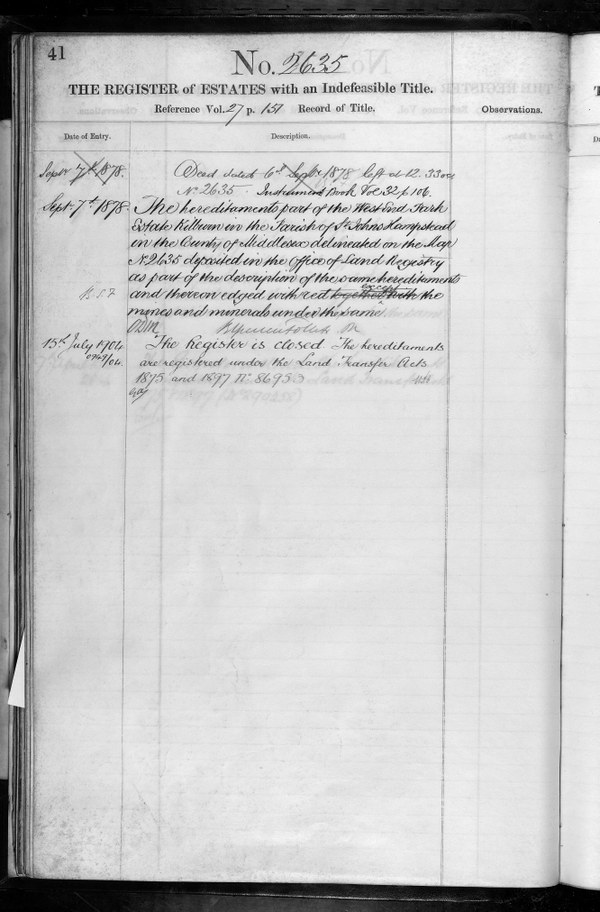 41
No. 2635
THE REGISTER of ESTATES with an Indefeasible Title.
Reference Vol. 27 p. 151 Record of Title.
Observations.
Date of Entry.
Description.
Septr 7th 1878.
Deed dated 6th Septr 1878 left at 12.33
No 2635. Instrument Book Vol 32 p 106.
Septr 7th 1878.
The hereditaments part of the West End Park
Estate Kilburn in the Parish of St Johns Hampstead
in the County of Middlesex delineated on the Map
No 2635 deposited in the Office of Land Registry
as part of the description of the same hereditaments
and thereon edged with red together with the
mines and minerals under the same
15th July 1904
The Register is closed The hereditaments
are registered under the Land Transfer Acts
1875 and 1897 No 86953